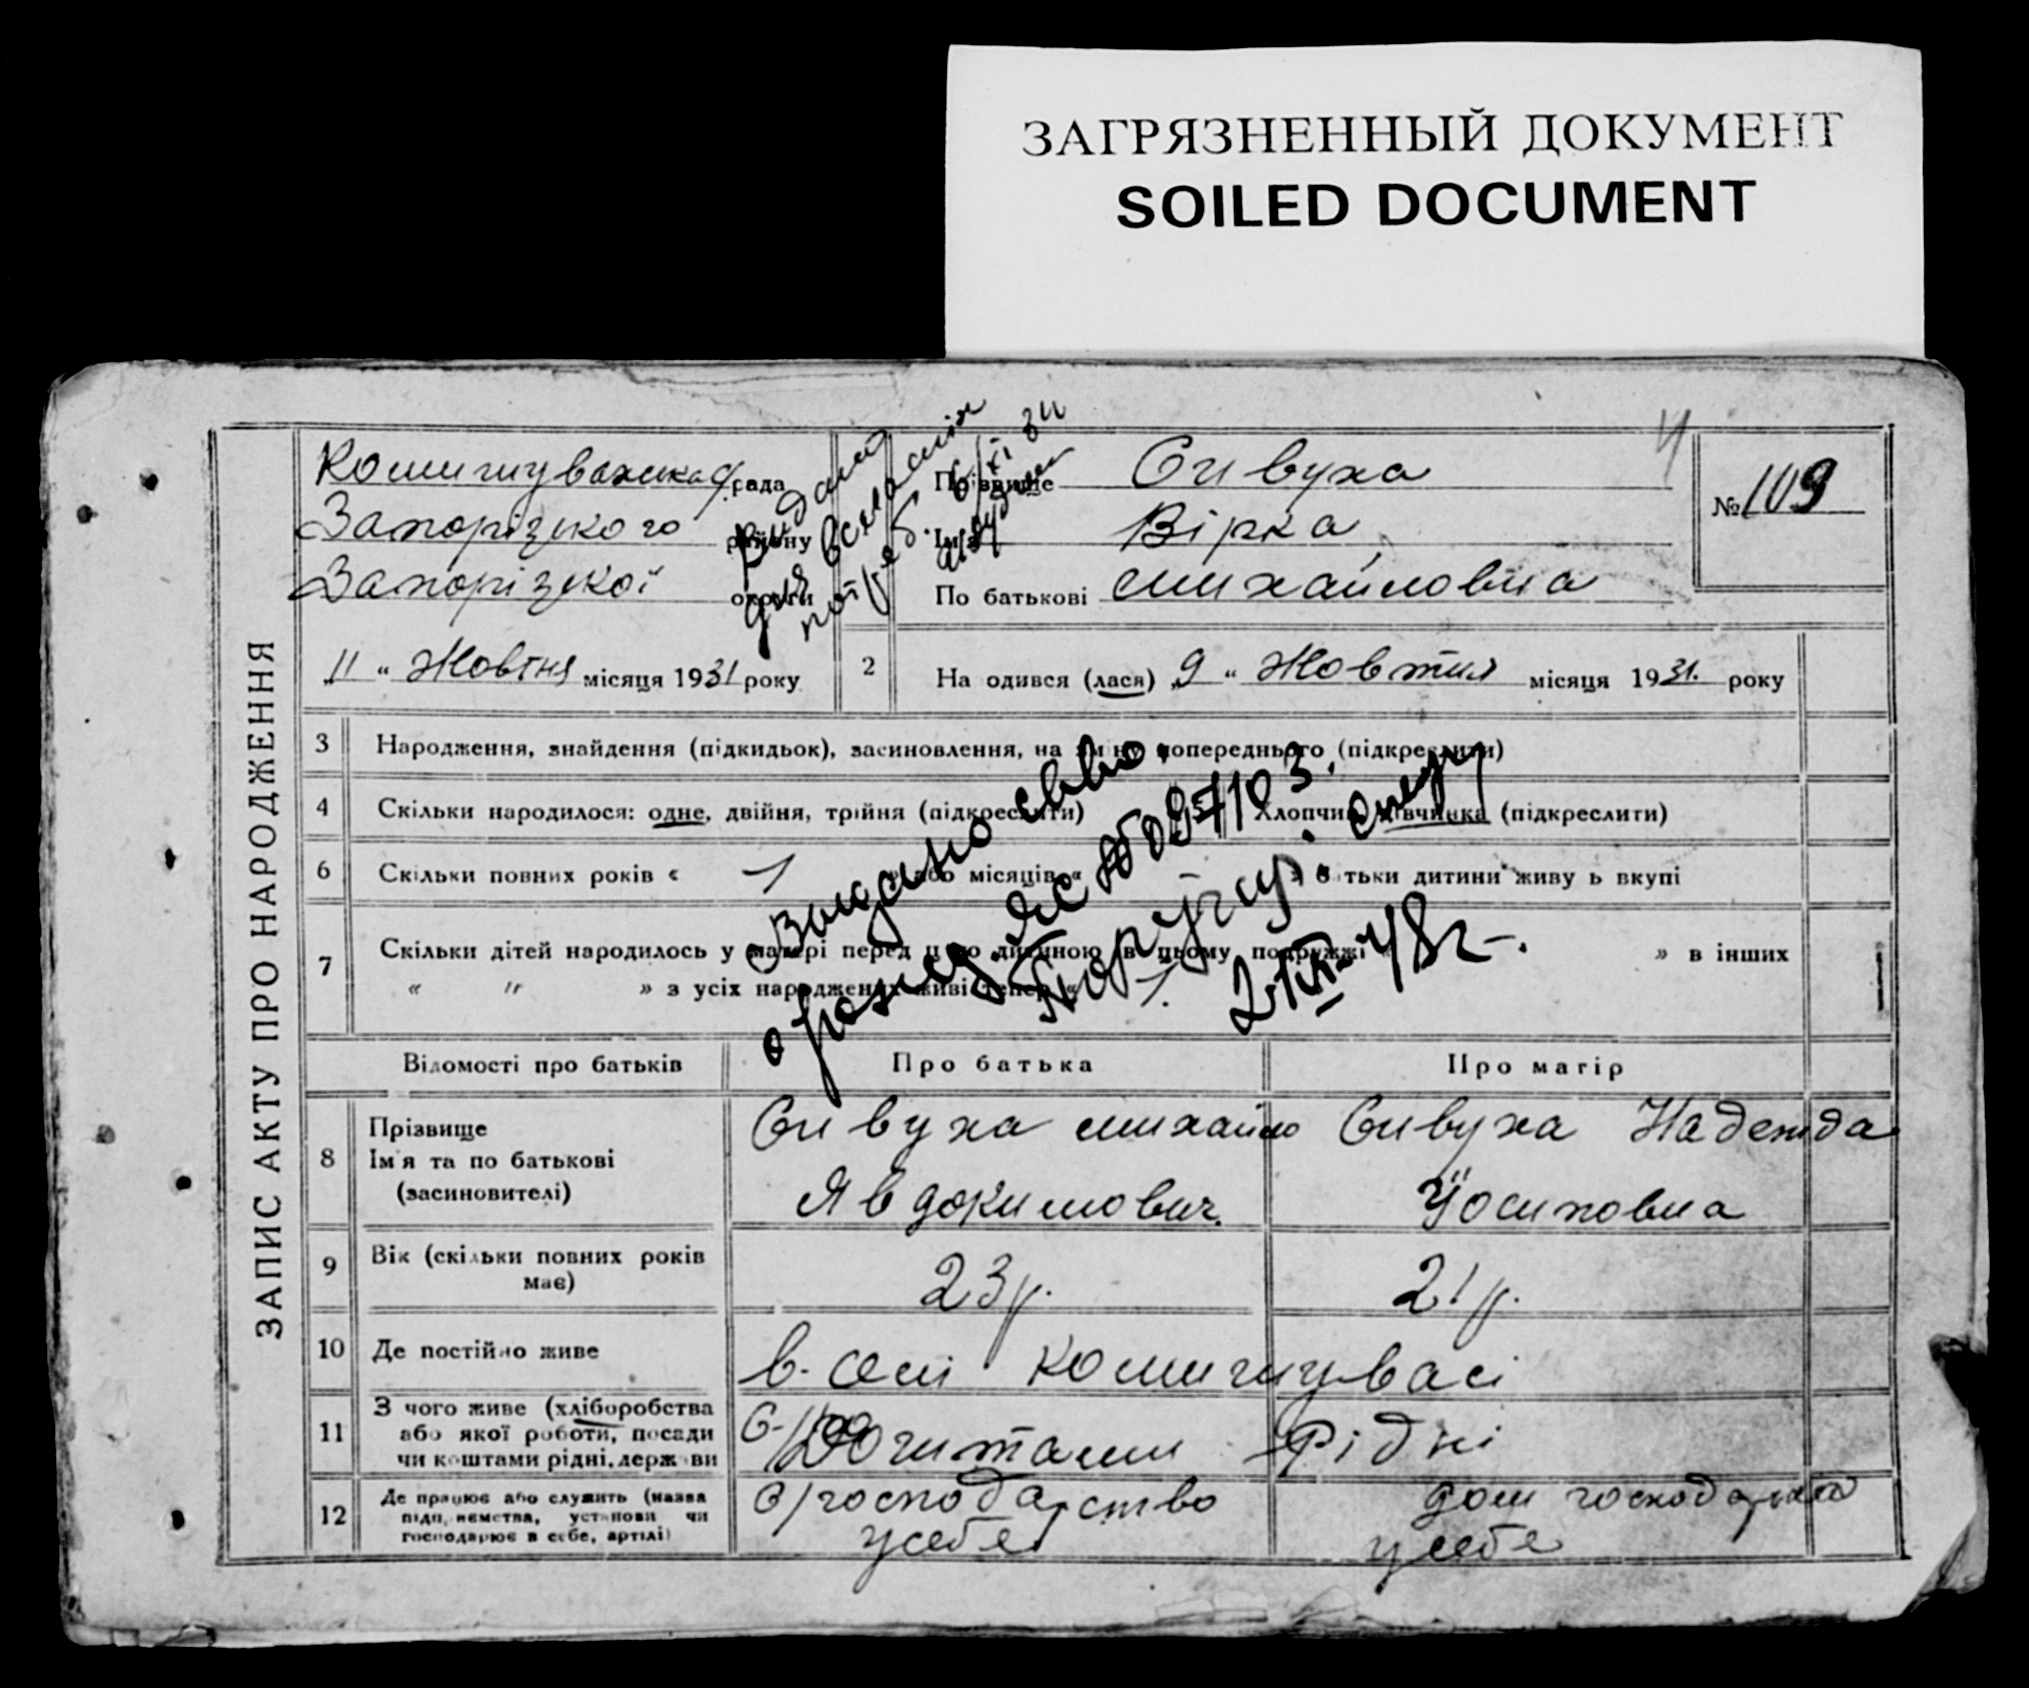 ЗАГРЯЗНЕННЫЙ ДОКУМЕНТ
SOILED DOCUMENT
ЗАПИС АКТУ ПРО НАРОДЖЕННЯ
рада
Запорізкого району
Запорізкої округи
Прізвище Сивуха
Ім'я Вірка
По батькові Михайловна
№ 109
"11" Жовтня місяця 1931 року
2 На одився (лася) "9" Жовтня місяця 1931. року
Видано
для
потреб.
3 Народження, знайдення (підкидьок), засиновлення, на зміну попереднього (підкреслити)
4 Скільки народилося: одне, двійня, трійня (підкреслити) Хлопчик дівчинка (підкреслити)
6 Скільки повних років « або місяців « » Батьки дитини живуть вкупі
7 Скільки дітей народилось у матері перед цією дитиною в цьому подружжі » в інших
« " » з усіх народжених живі тепер « 1.
Выдано
2/IX-48 г.
Відомості про батьків Про батька Про матір
8 Прізвище
Ім'я та по батькові
(засиновителі)
Сивуха Михайло
Явдокимович.
Сивуха Надежда
Йосиповна
9 Вік (скільки повних років
має)
23 р. 21 р.
10 Де постійно живе в. селі Комишувасі
11 З чого живе (хліборобства
або якої роботи, посади
чи коштами рідні, держави
Рідні
12 Де працює або служить (назва
підприємства, установи чи
господарює в себе, артілі)
господарство
у себе
дом
у себе